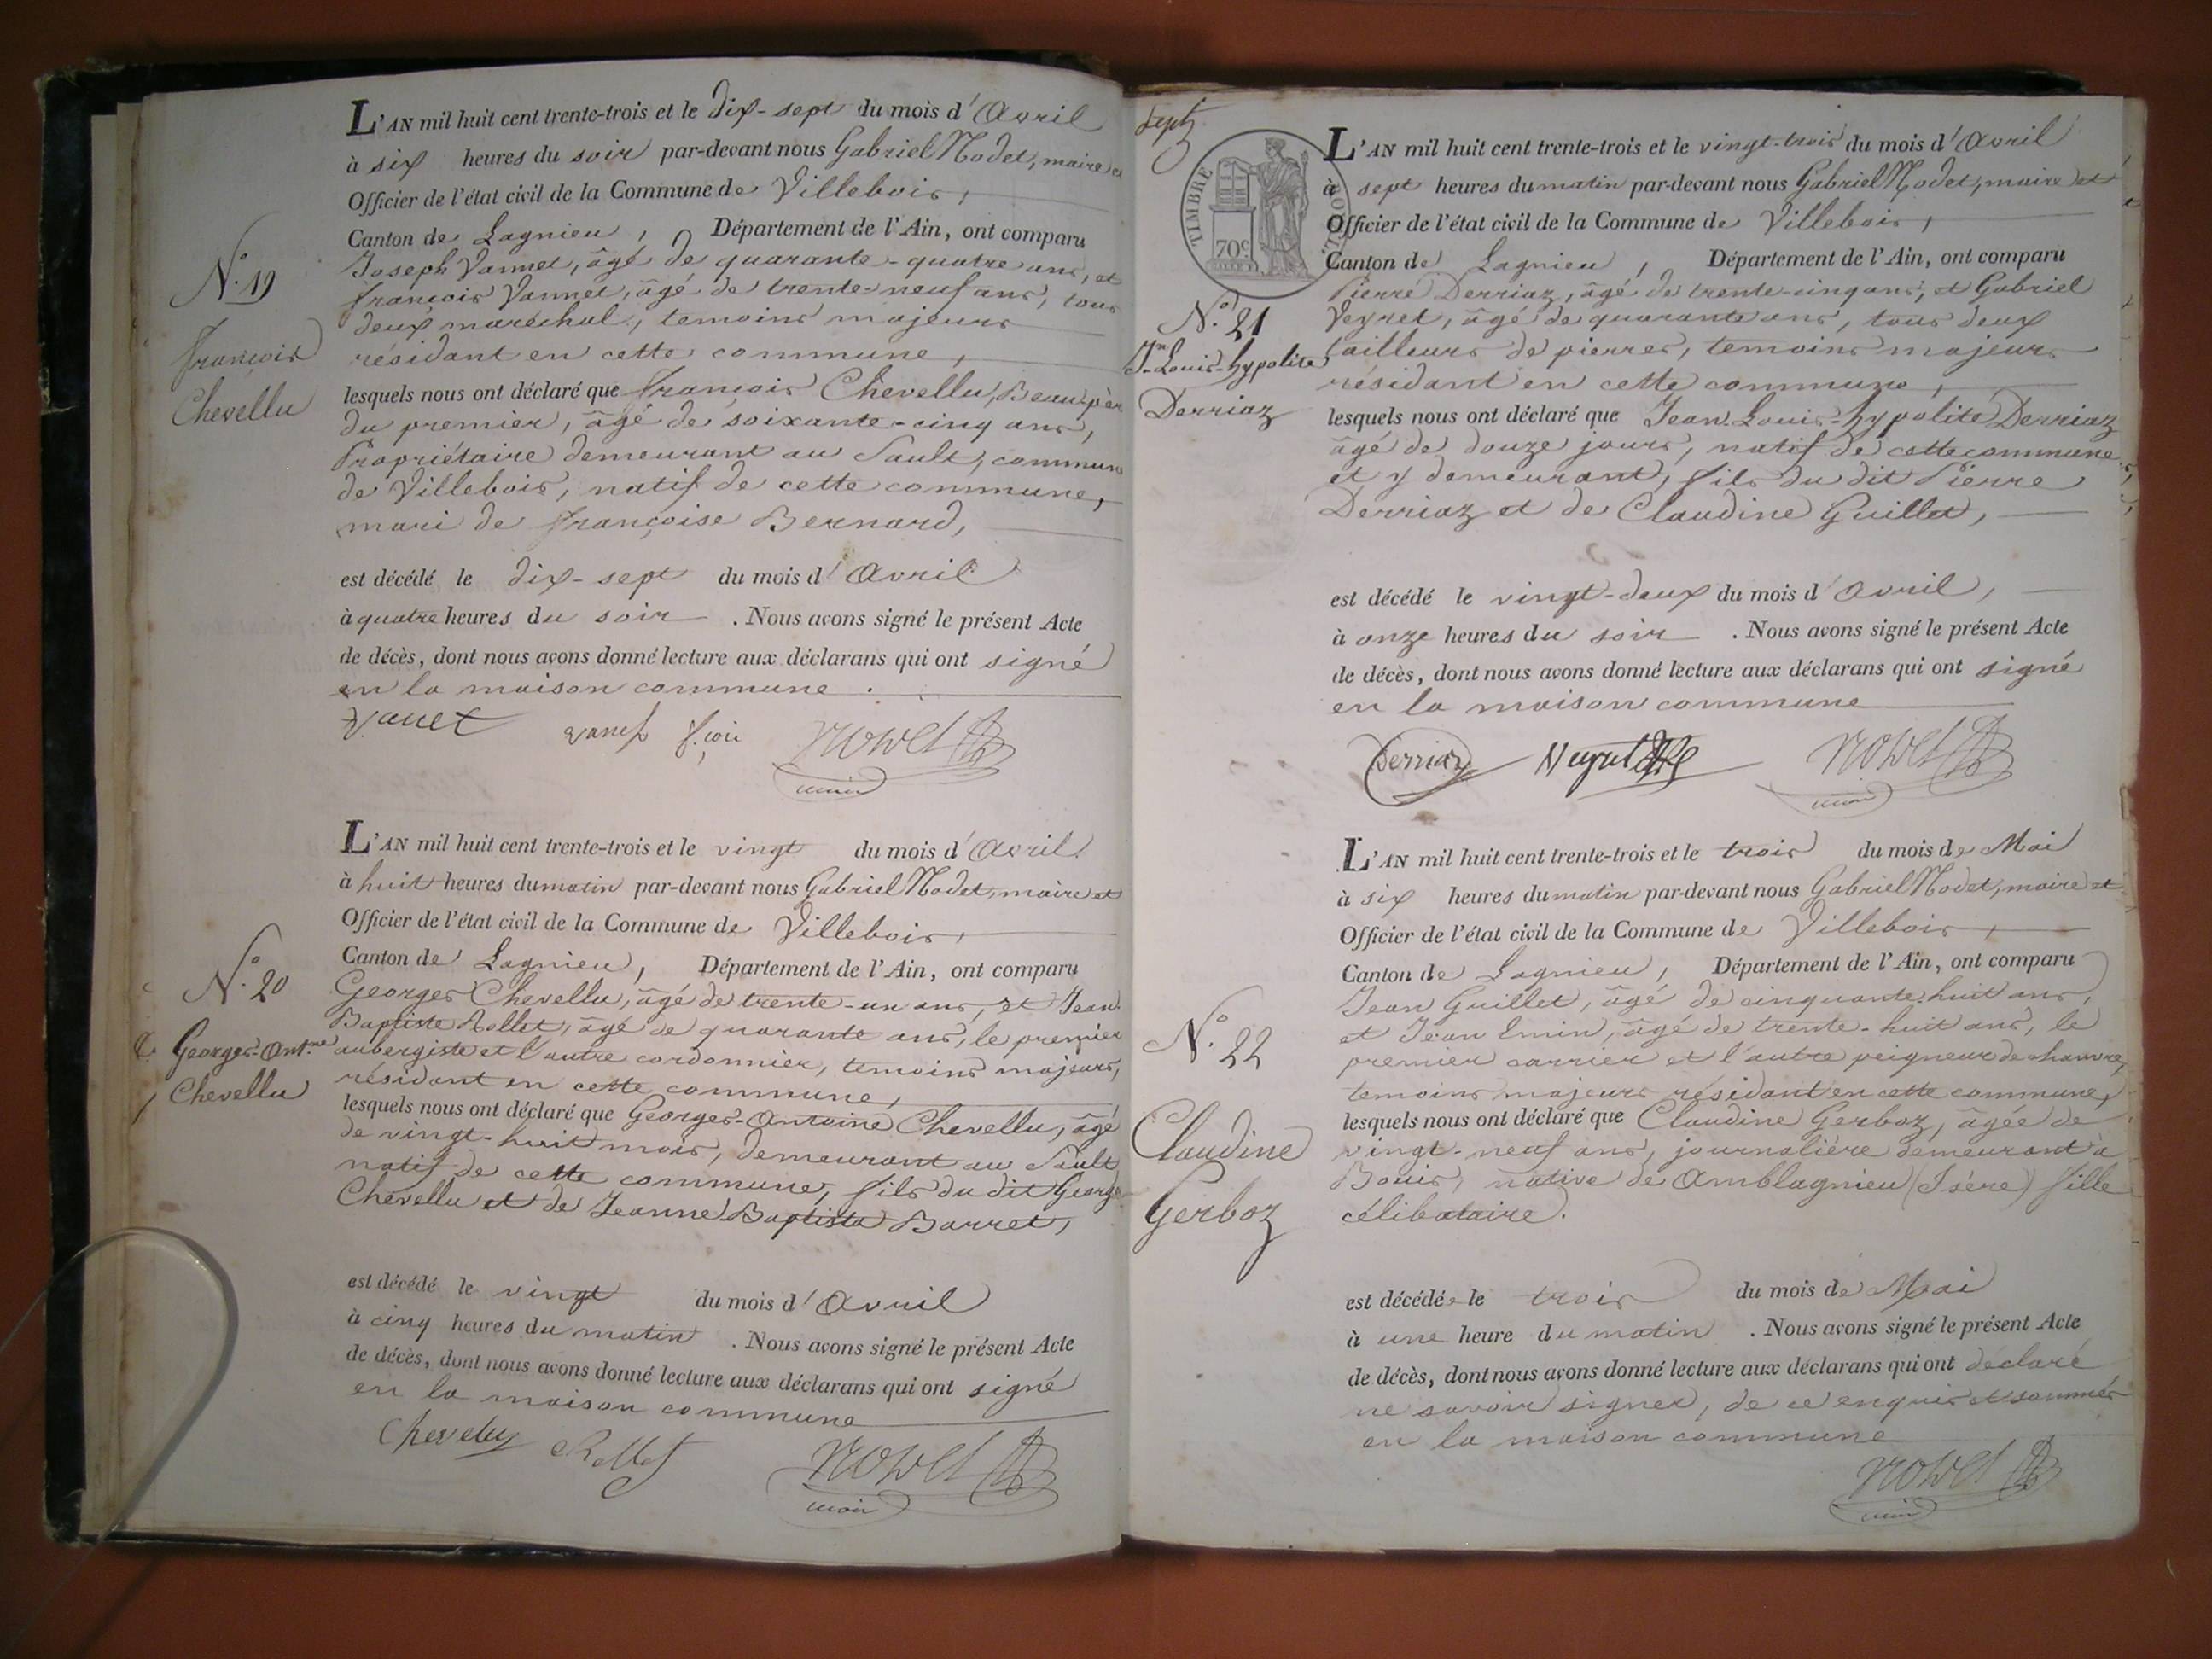 L'AN mil huit cent trente-trois et le dix-sept du mois d'Avril
à six heures du soir par-devant nous Gabriel Nodet, maire et
Officier de l'état civil de la Commune de Villebois,
Canton de Lagnieu, Département de l'Ain, ont comparu
Joseph Vannet, âgé de quarante-quatre ans, et
françois Vannet, âgé de trente-neuf ans, tous
deux maréchal, temoins majeurs
résidant en cette commune,
lesquels nous ont déclaré que françois Chevellu, Beau père
du premier, âgé de soixante-cinq ans,
Propriétaire demeurant au Sault, commune
de Villebois, natif de cette commune,
mari de françoise Bernard,
N.o 19
françois
Chevellu
est décédé le dix-sept du mois d'Avril
à quatre heures du soir. Nous avons signé le présent Acte
de décès, dont nous avons donné lecture aux déclarans qui ont signé
en la maison commune.
Vanet
Nodet
maire
L'AN mil huit cent trente-trois et le vingt du mois d'Avril
à huit heures du matin par-devant nous Gabriel Nodet, maire et
Officier de l'état civil de la Commune de Villebois,
Canton de Lagnieu, Département de l'Ain, ont comparu
Georges Chevellu, âgé de trente-un ans, et Jean
Baptiste Rollet, âgé de quarante ans, le premier
aubergiste et l'autre cordonnier, temoins majeurs,
résidant en cette commune,
lesquels nous ont déclaré que Georges-Antoine Chevellu, âgé
de vingt-huit mois, demeurant au Sault
natif de cette commune, fils du dit George
Chevellu et de Jeanne Baptista Barret,
N.o 20
Georges-Ant.ne
Chevellu
est décédé le vingt du mois d'Avril
à cinq heures du matin. Nous avons signé le présent Acte
de décès, dont nous avons donné lecture aux déclarans qui ont signé
en la maison commune
Chevelu Rollet Nodet
maire
sept
TIMBRE ROYAL
70c
L'AN mil huit cent trente-trois et le vingt-trois du mois d'Avril
à sept heures du matin par-devant nous Gabriel Nodet, maire et
Officier de l'état civil de la Commune de Villebois,
Canton de Lagnieu, Département de l'Ain, ont comparu
Pierre Derriaz, âgé de trente-cinq ans, et Gabriel
Veyret, âgé de quarante ans, tous deux
tailleurs de pierres, temoins majeurs
résidant en cette commune,
lesquels nous ont déclaré que Jean-Louis-hypolite Derriaz
âgé de douze jours, natif de cette commune
et y demeurant, fils du dit Pierre
Derriaz et de Claudine Guillet,
N.o 21
Jn-Louis-hypolite
Derriaz
est décédé le vingt-deux du mois d'Avril,
à onze heures du soir. Nous avons signé le présent Acte
de décès, dont nous avons donné lecture aux déclarans qui ont signé
en la maison commune
Derriaz Nodet
maire
L'AN mil huit cent trente-trois et le trois du mois de Mai
à six heures du matin par-devant nous Gabriel Nodet, maire et
Officier de l'état civil de la Commune de Villebois,
Canton de Lagnieu, Département de l'Ain, ont comparu
Jean Guillet, âgé de cinquante huit ans,
et Jean Emin, âgé de trente-huit ans, le
premier carrier et l'autre peigneur de chanvre,
temoins majeurs résidant en cette commune,
lesquels nous ont déclaré que Claudine Gerboz, âgée de
vingt-neuf ans, journalière demeurant à
Bouis, native de Amblagnieu (Isère) fille
célibataire.
N.o 22
Claudine
Gerboz
est décédée le trois du mois de Mai
à une heure du matin. Nous avons signé le présent Acte
de décès, dont nous avons donné lecture aux déclarans qui ont déclaré
ne savoir signer, de ce enquis et sommés
en la maison commune
Nodet
maire